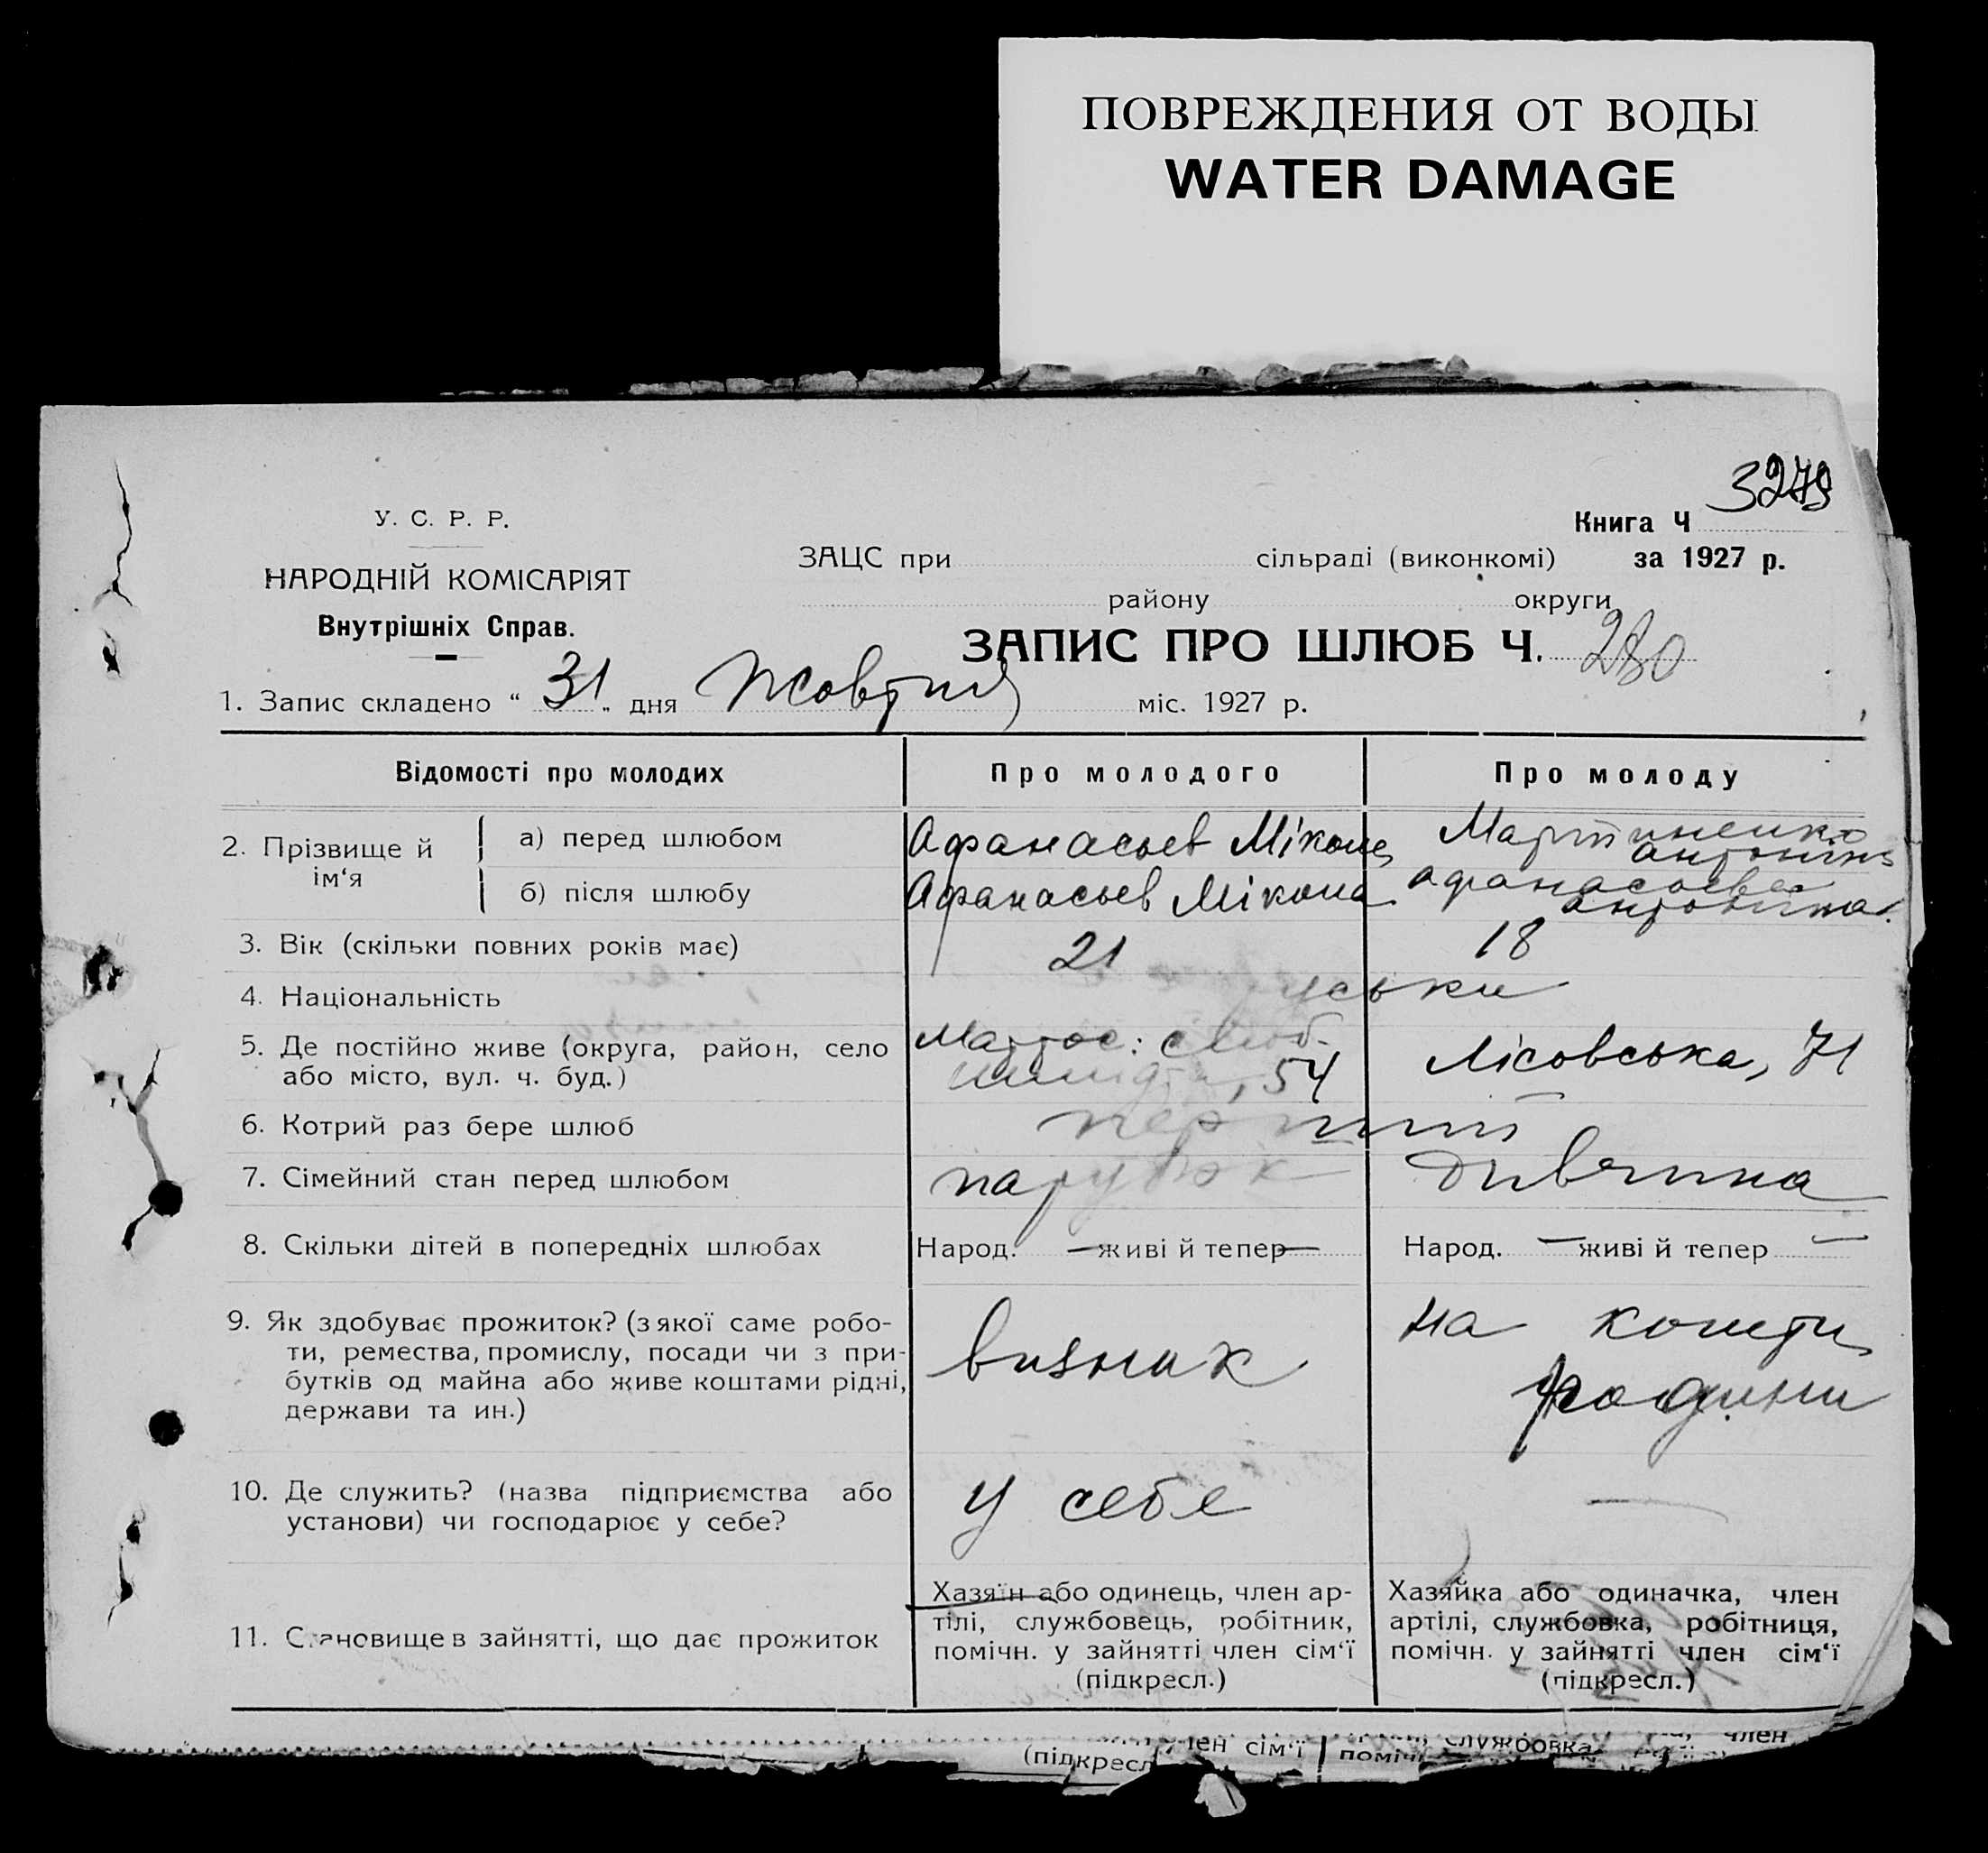 ПОВРЕЖДЕНИЯ ОТ ВОДЫ
WATER DAMAGE
У. С. Р. Р.
НАРОДНІЙ КОМІСАРІЯТ
Внутрішніх Справ.
Книга Ч
ЗАЦС при сільраді (виконкомі) за 1927 р.
району округи
ЗАПИС ПРО ШЛЮБ Ч. 280
1. Запис складено “ 31 „ дня Жовтня міс. 1927 р.
Відомості про молодих Про молодого Про молоду
2. Прізвище й ім‘я
а) перед шлюбом Афанасьев Мікола Мартиненко Антоніна
б) після шлюбу Афанасьев Мікола Афанасьева Антоніна
3. Вік (скільки повних років має) 21 18
4. Національність
5. Де постійно живе (округа, район, село
або місто, вул. ч. буд.) 54 Лісовська, 71
6. Котрий раз бере шлюб перший
7. Сімейний стан перед шлюбом парубок дивчина
8. Скільки дітей в попередніх шлюбах Народ. — живі й тепер — Народ. — живі й тепер —
9. Як здобуває прожиток? (з якої саме робо-
ти, ремества, промислу, посади чи з при-
бутків од майна або живе коштами рідні,
держави та ин.)
визник
на кошти
родини
10. Де служить? (назва підприємства або
установи) чи господарює у себе?
у себе —
11. Становище в зайнятті, що дає прожиток
Хазяїн або одинець, член ар-
тілі, службовець, робітник,
помічн. у зайнятті член сім‘ї
(підкресл.)
Хазяйка або одиначка, член
артілі, службовка, робітниця,
помічн. у зайнятті член сім‘ї
(підкресл.)
член сім‘ї службовка член
(підкресл